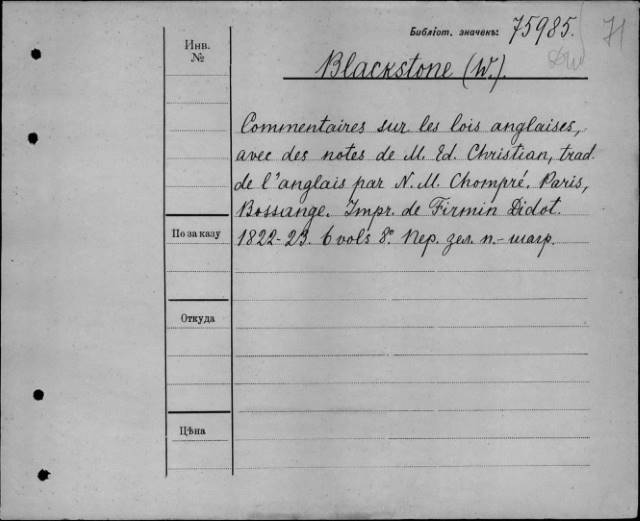 Библіот. значекъ: 75985. 71
Инв.
№
Blackstone (W.).
Commentaires sur les lois anglaises,
avec des notes de M. Ed. Christian, trad.
de l'anglais par N. M. Chompré. Paris,
Bossange. Impr. de Firmin Didot.
По заказу
1822-23. 6 vols 8º Пер. зел. п.-шагр.
Откуда
Цѣна